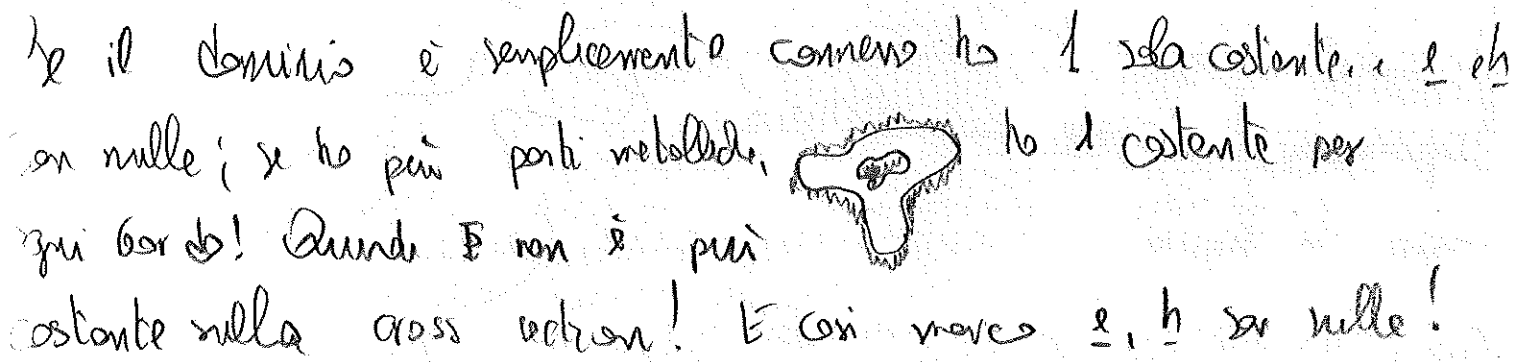 Se il dominio è semplicemente connesso ho 1 sola costante.. e e h
on nulle; se ho più parti metalliche, ho 1 costante per
gni bordo! Quindi Φ non è più
ostante sulla cross section! E così manco e, h son nulle!